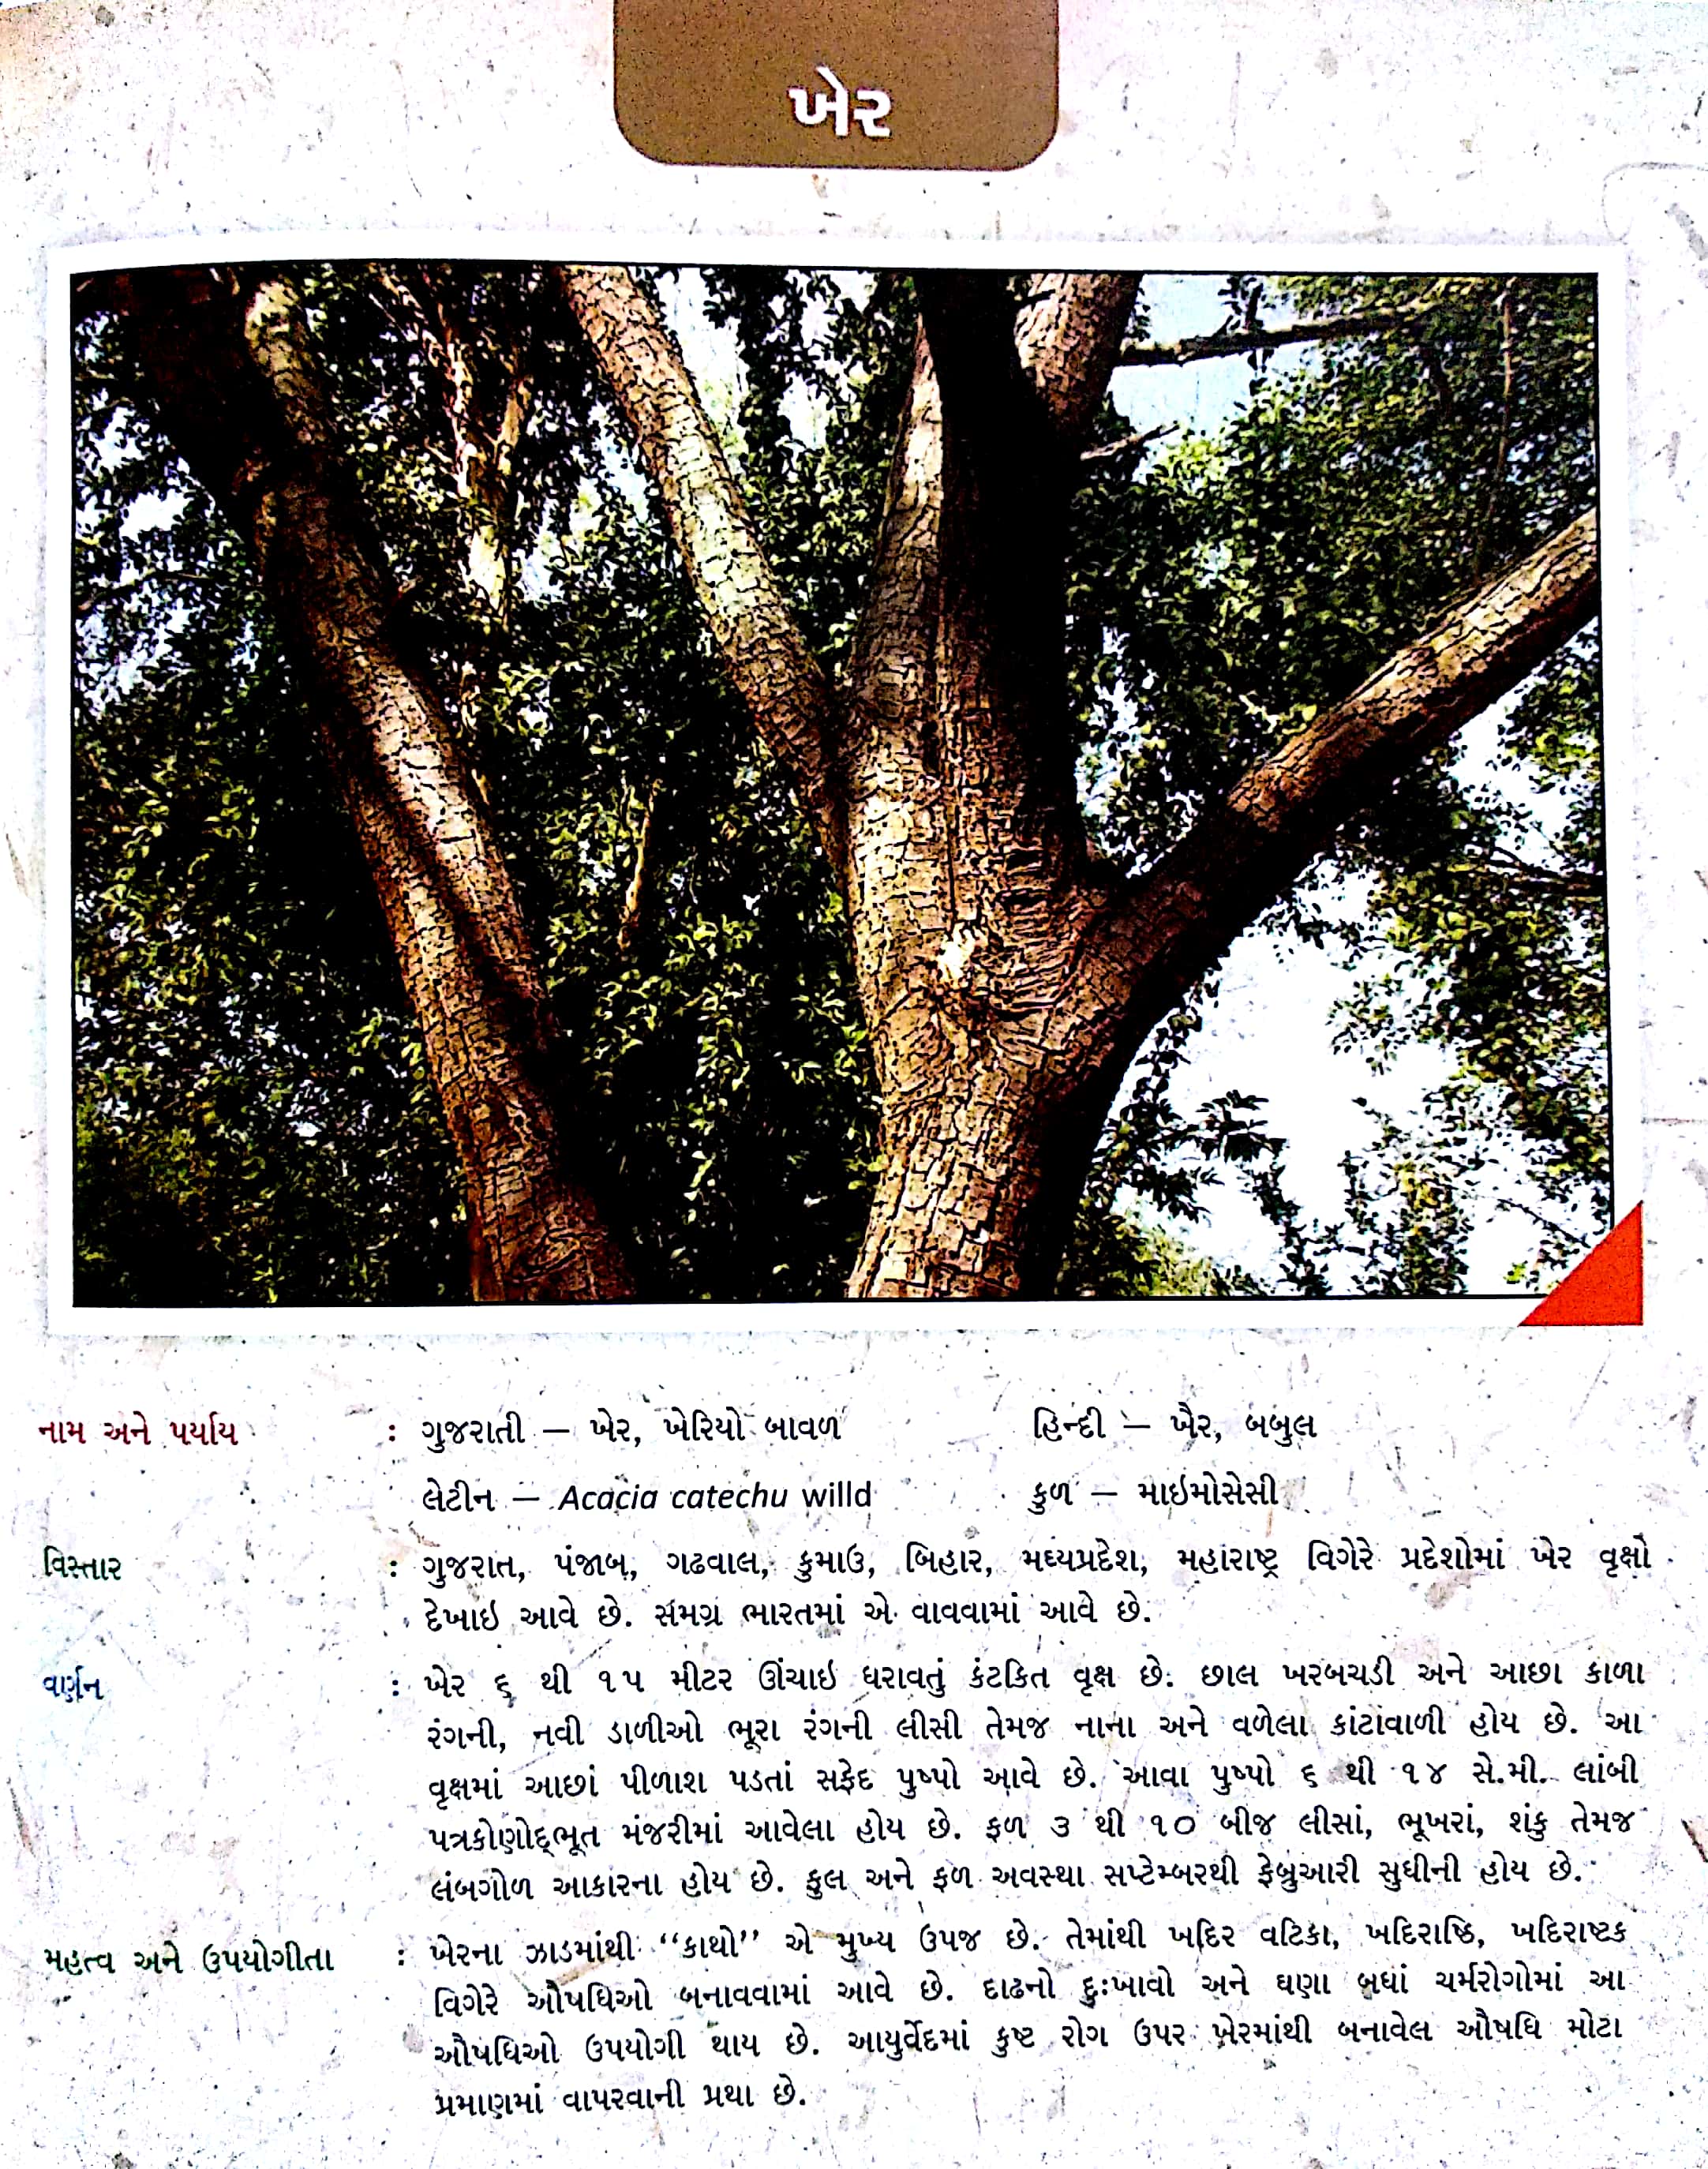 ખેર
નામ અને પર્યાય : ગુજરાતી – ખેર, ખેરિયો બાવળ હિન્દી – ખૈર, બબુલ
લેટીન – Acacia catechu willd કુળ – માઇમોસેસી
વિસ્તાર : ગુજરાત, પંજાબ, ગઢવાલ, કુમાઉ, બિહાર, મધ્યપ્રદેશ, મહારાષ્ટ્ર વિગેરે પ્રદેશોમાં ખેર વૃક્ષો
દેખાઇ આવે છે. સમગ્ર ભારતમાં એ વાવવામાં આવે છે.
વર્ણન : ખેર ૬ થી ૧૫ મીટર ઊંચાઇ ધરાવતું કંટકિત વૃક્ષ છે. છાલ ખરબચડી અને આછા કાળા
રંગની, નવી ડાળીઓ ભૂરા રંગની લીસી તેમજ નાના અને વળેલા કાંટાવાળી હોય છે. આ
વૃક્ષમાં આછાં પીળાશ પડતાં સફેદ પુષ્પો આવે છે. આવા પુષ્પો ૬ થી ૧૪ સે.મી. લાંબી
પત્રકોણોદ્ભૂત મંજરીમાં આવેલા હોય છે. ફળ ૩ થી ૧૦ બીજ લીસાં, ભૂખરાં, શંકુ તેમજ
લંબગોળ આકારના હોય છે. ફુલ અને ફળ અવસ્થા સપ્ટેમ્બરથી ફેબ્રુઆરી સુધીની હોય છે.
મહત્વ અને ઉપયોગીતા : ખેરના ઝાડમાંથી “કાથો” એ મુખ્ય ઉપજ છે. તેમાંથી ખદિર વટિકા, ખદિરાષ્ઠિ, ખદિરાષ્ટક
વિગેરે ઔષધિઓ બનાવવામાં આવે છે. દાઢનો દુઃખાવો અને ઘણા બધાં ચર્મરોગોમાં આ
ઔષધિઓ ઉપયોગી થાય છે. આયુર્વેદમાં કુષ્ટ રોગ ઉપર ખેરમાંથી બનાવેલ ઔષધિ મોટા
પ્રમાણમાં વાપરવાની પ્રથા છે.